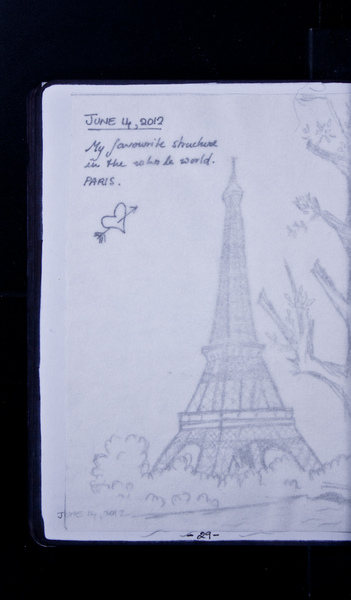 JUNE 14, 2012
My favourite structure
in the whole world.
PARIS.
JUNE 14, 2012
- 29 -